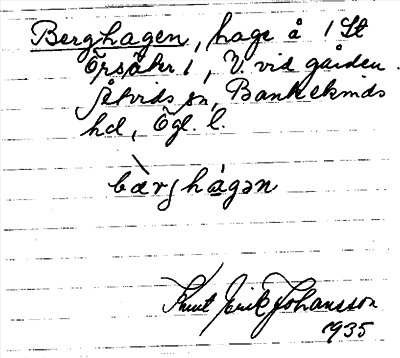 Berghagen, hage å 1 St
Örsåker 1, V. vid gården.
Åtvids sn, Bankekinds
hd, Ögl. l.
bæ̀rj hágən
Knut Erik Johansson
1935